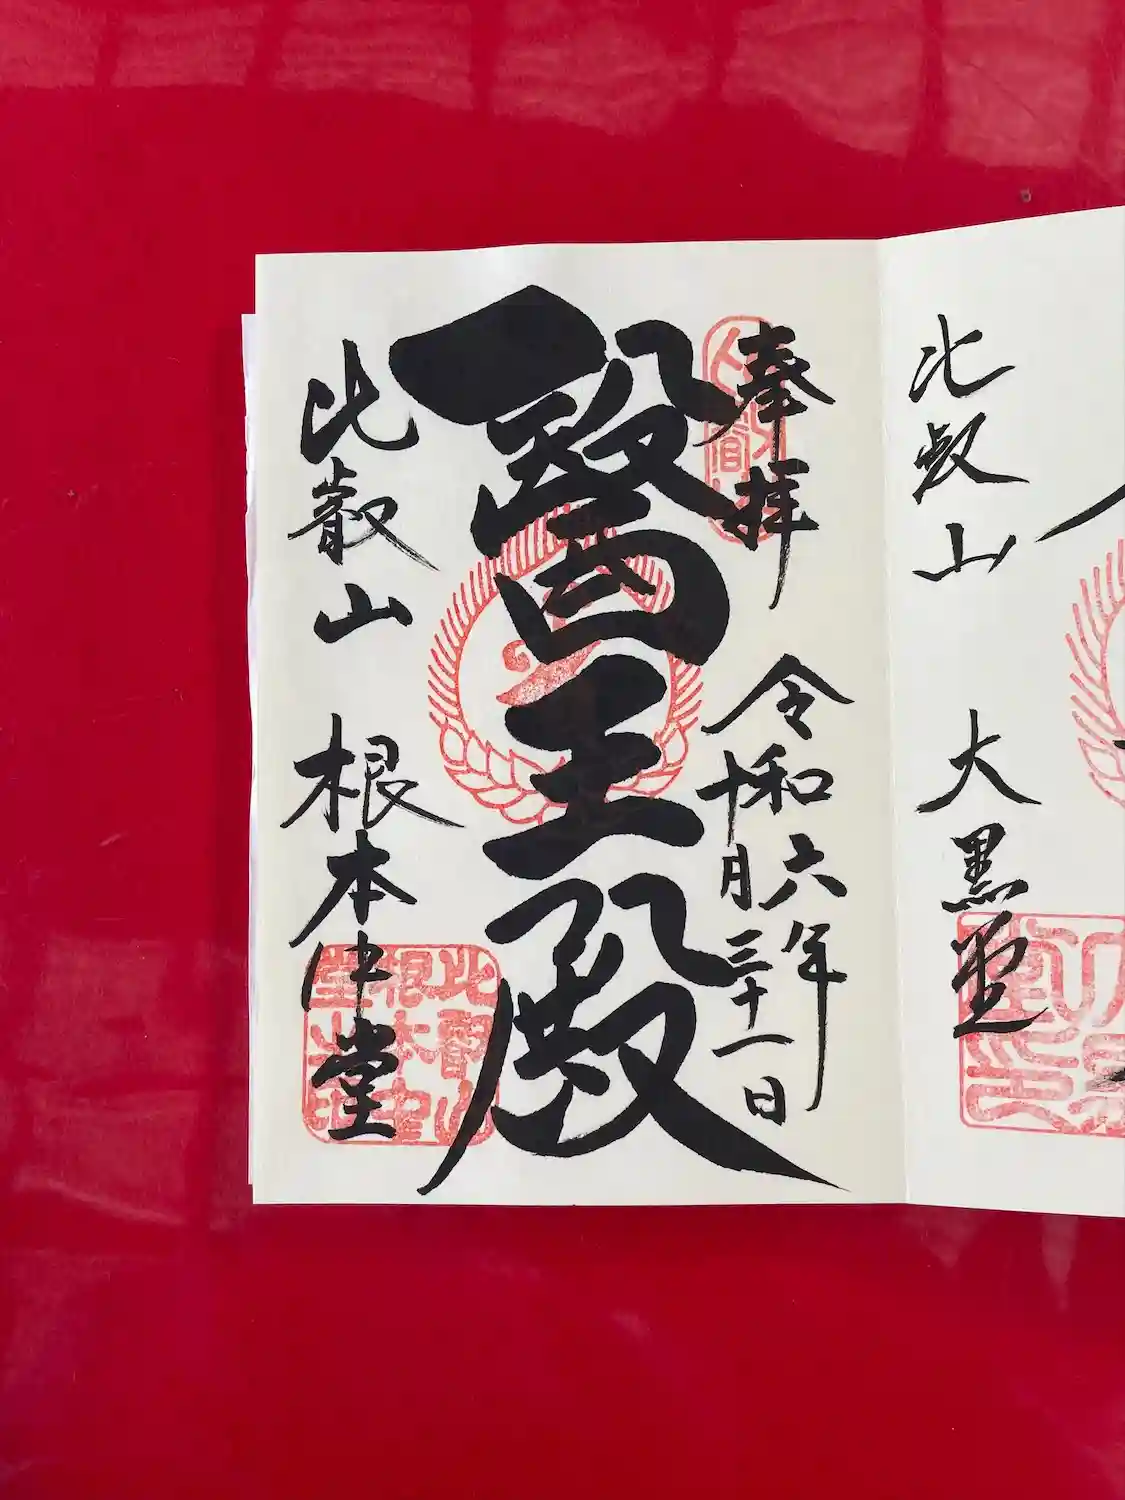 比叡山 大黒堂
奉拝
令和六年
十月三十一日
醫王殿
比叡山 根本中堂